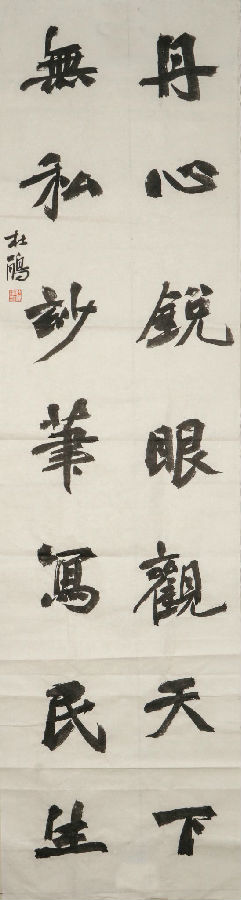 丹心銳眼觀天下
無私妙筆寫民生
杜鵑